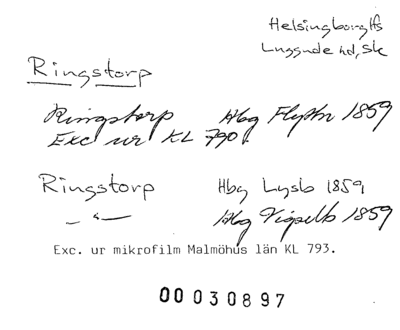 Helsingborg lfs
Luggude hd, Sk
Ringstorp
Ringstorp Hbg Flyttn 1859
Exc ur KL 790.
Ringstorp Hbg Lysb 1859
— " — Hbg Vigselb 1859
Exc. ur mikrofilm Malmöhus län KL 793.
00030897